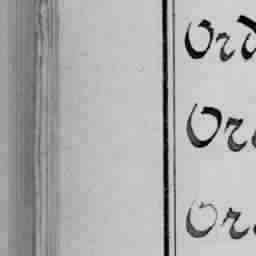 Ord
Or
Or